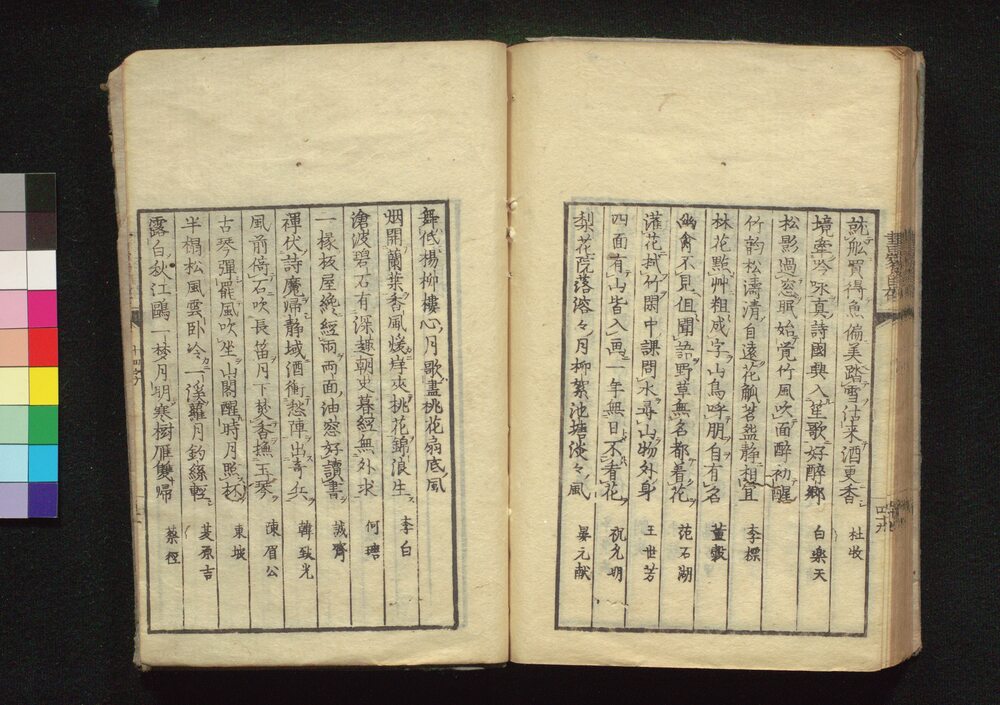 就舩買得魚偏美踏雪沽来酒更香 杜牧
境牽吟咏真詩國興入笙歌好醉郷 白樂天
松影過窓眠始覚竹風吹面醉初醒
竹韵松濤清自遠花觚茗盌静相宜 李標
林花點艸粗成字山鳥呼朋自有名 董穀
幽禽不見但聞語野草無名都着花 范石湖
灌花栽竹閑中課問水尋山物外身 王世芳
四面有山皆入画一年無日不看花 祝允明
梨花院落溶々月柳絮池塘淡々風 晏元献
舞低楊柳樓心月歌盡桃花扇底風
烟開蘭葉香風煖岸夾桃花錦浪生 李白
滄波碧石有深趣朝史暮經無外求 何瑭
一椽板屋纔經雨両面油窓好讀書 誠齋
禅伏詩魔帰静域酒衝愁陣出奇兵 韓致光
風前倚石吹長笛月下焚香撫玉琴 陳眉公
古琴彈罷風吹坐山閣醒時月照杯 東坡
半榻松風雲卧冷一溪蘿月釣絲輕 吉
露白秋江鷗一梦月明寒樹雁雙歸 蔡
四十九